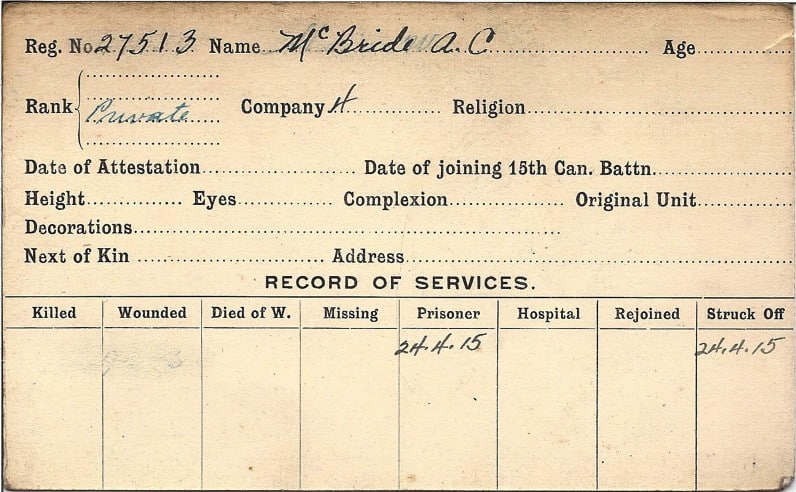 Reg. No. 27513 Name McBride A. C. Age
Rank Private Company H Religion
Date of Attestation Date of joining 15th Can. Battn.
Height Eyes Complexion Original Unit
Decorations
Next of Kin Address
RECORD OF SERVICES.
Killed Wounded Died of W. Missing Prisoner Hospital Rejoined Struck Off
24.4.15 24.4.15